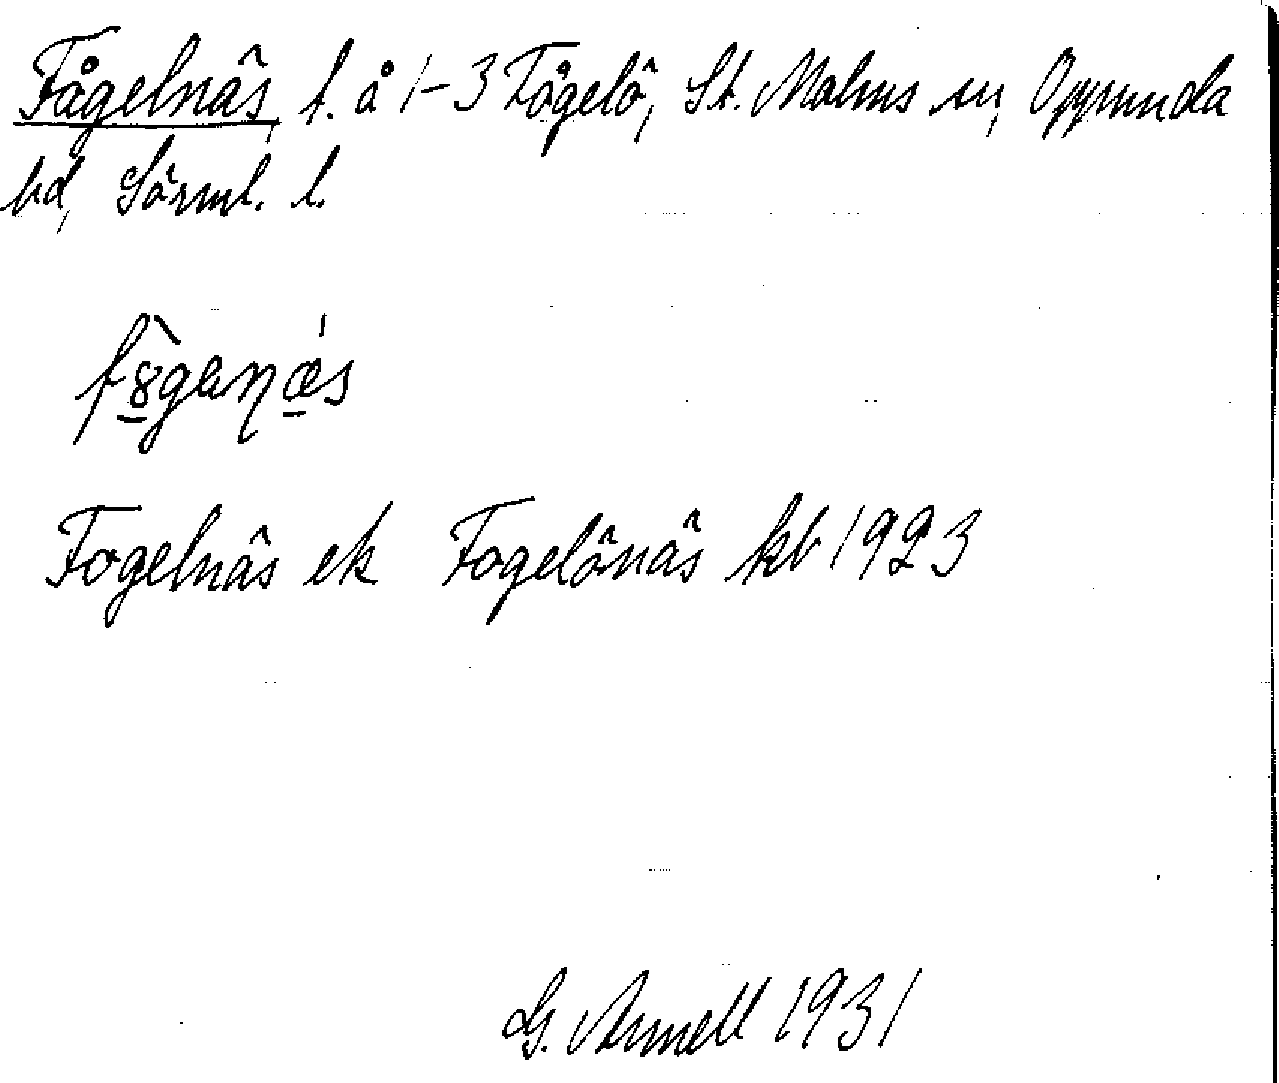 Fågelnäs, t. å 1-3 Fågelö, St. Malms sn, Oppunda
hd, Sörml. l.
Fogelnäs ek Fogelönäs kb 1923
G. Armell 1931